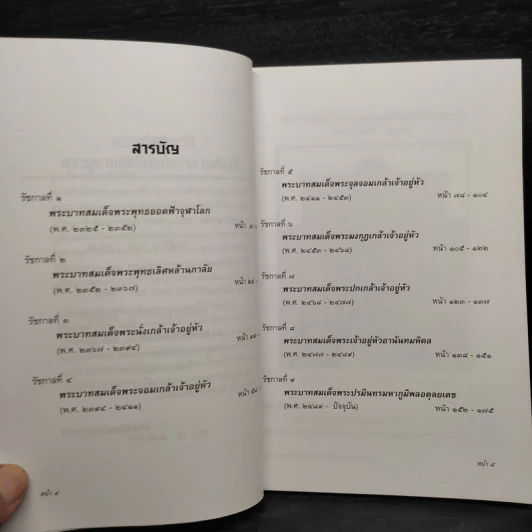 สารบัญ
รัชกาลที่ ๑
พระบาทสมเด็จพระพุทธยอดฟ้าจุฬาโลก
(พ.ศ. ๒๓๒๕ - ๒๓๕๒) หน้า
รัชกาลที่ ๒
พระบาทสมเด็จพระพุทธเลิศหล้านภาลัย
(พ.ศ. ๒๓๕๒ - ๒๓๖๗) หน้า
รัชกาลที่ ๓
พระบาทสมเด็จพระนั่งเกล้าเจ้าอยู่หัว
(พ.ศ. ๒๓๖๗ - ๒๓๙๔) หน้า
รัชกาลที่ ๔
พระบาทสมเด็จพระจอมเกล้าเจ้าอยู่หัว
(พ.ศ. ๒๓๙๔ - ๒๔๑๑) หน้า
หน้า ๔
รัชกาลที่ ๕
พระบาทสมเด็จพระจุลจอมเกล้าเจ้าอยู่หัว
(พ.ศ. ๒๔๑๑ - ๒๔๕๓) หน้า ๗๘ - ๑๐๔
รัชกาลที่ ๖
พระบาทสมเด็จพระมงกุฎเกล้าเจ้าอยู่หัว
(พ.ศ. ๒๔๕๓ - ๒๔๖๘) หน้า ๑๐๕ - ๑๒๒
รัชกาลที่ ๗
พระบาทสมเด็จพระปกเกล้าเจ้าอยู่หัว
(พ.ศ. ๒๔๖๘ - ๒๔๗๗) หน้า ๑๒๓ - ๑๓๗
รัชกาลที่ ๘
พระบาทสมเด็จพระเจ้าอยู่หัวอานันทมหิดล
(พ.ศ. ๒๔๗๗ - ๒๔๘๙) หน้า ๑๓๘ - ๑๕๑
รัชกาลที่ ๙
พระบาทสมเด็จพระปรมินทรมหาภูมิพลอดุลยเดช
(พ.ศ. ๒๔๘๙ - ปัจจุบัน) หน้า ๑๕๒ - ๑๗๕
หน้า ๕